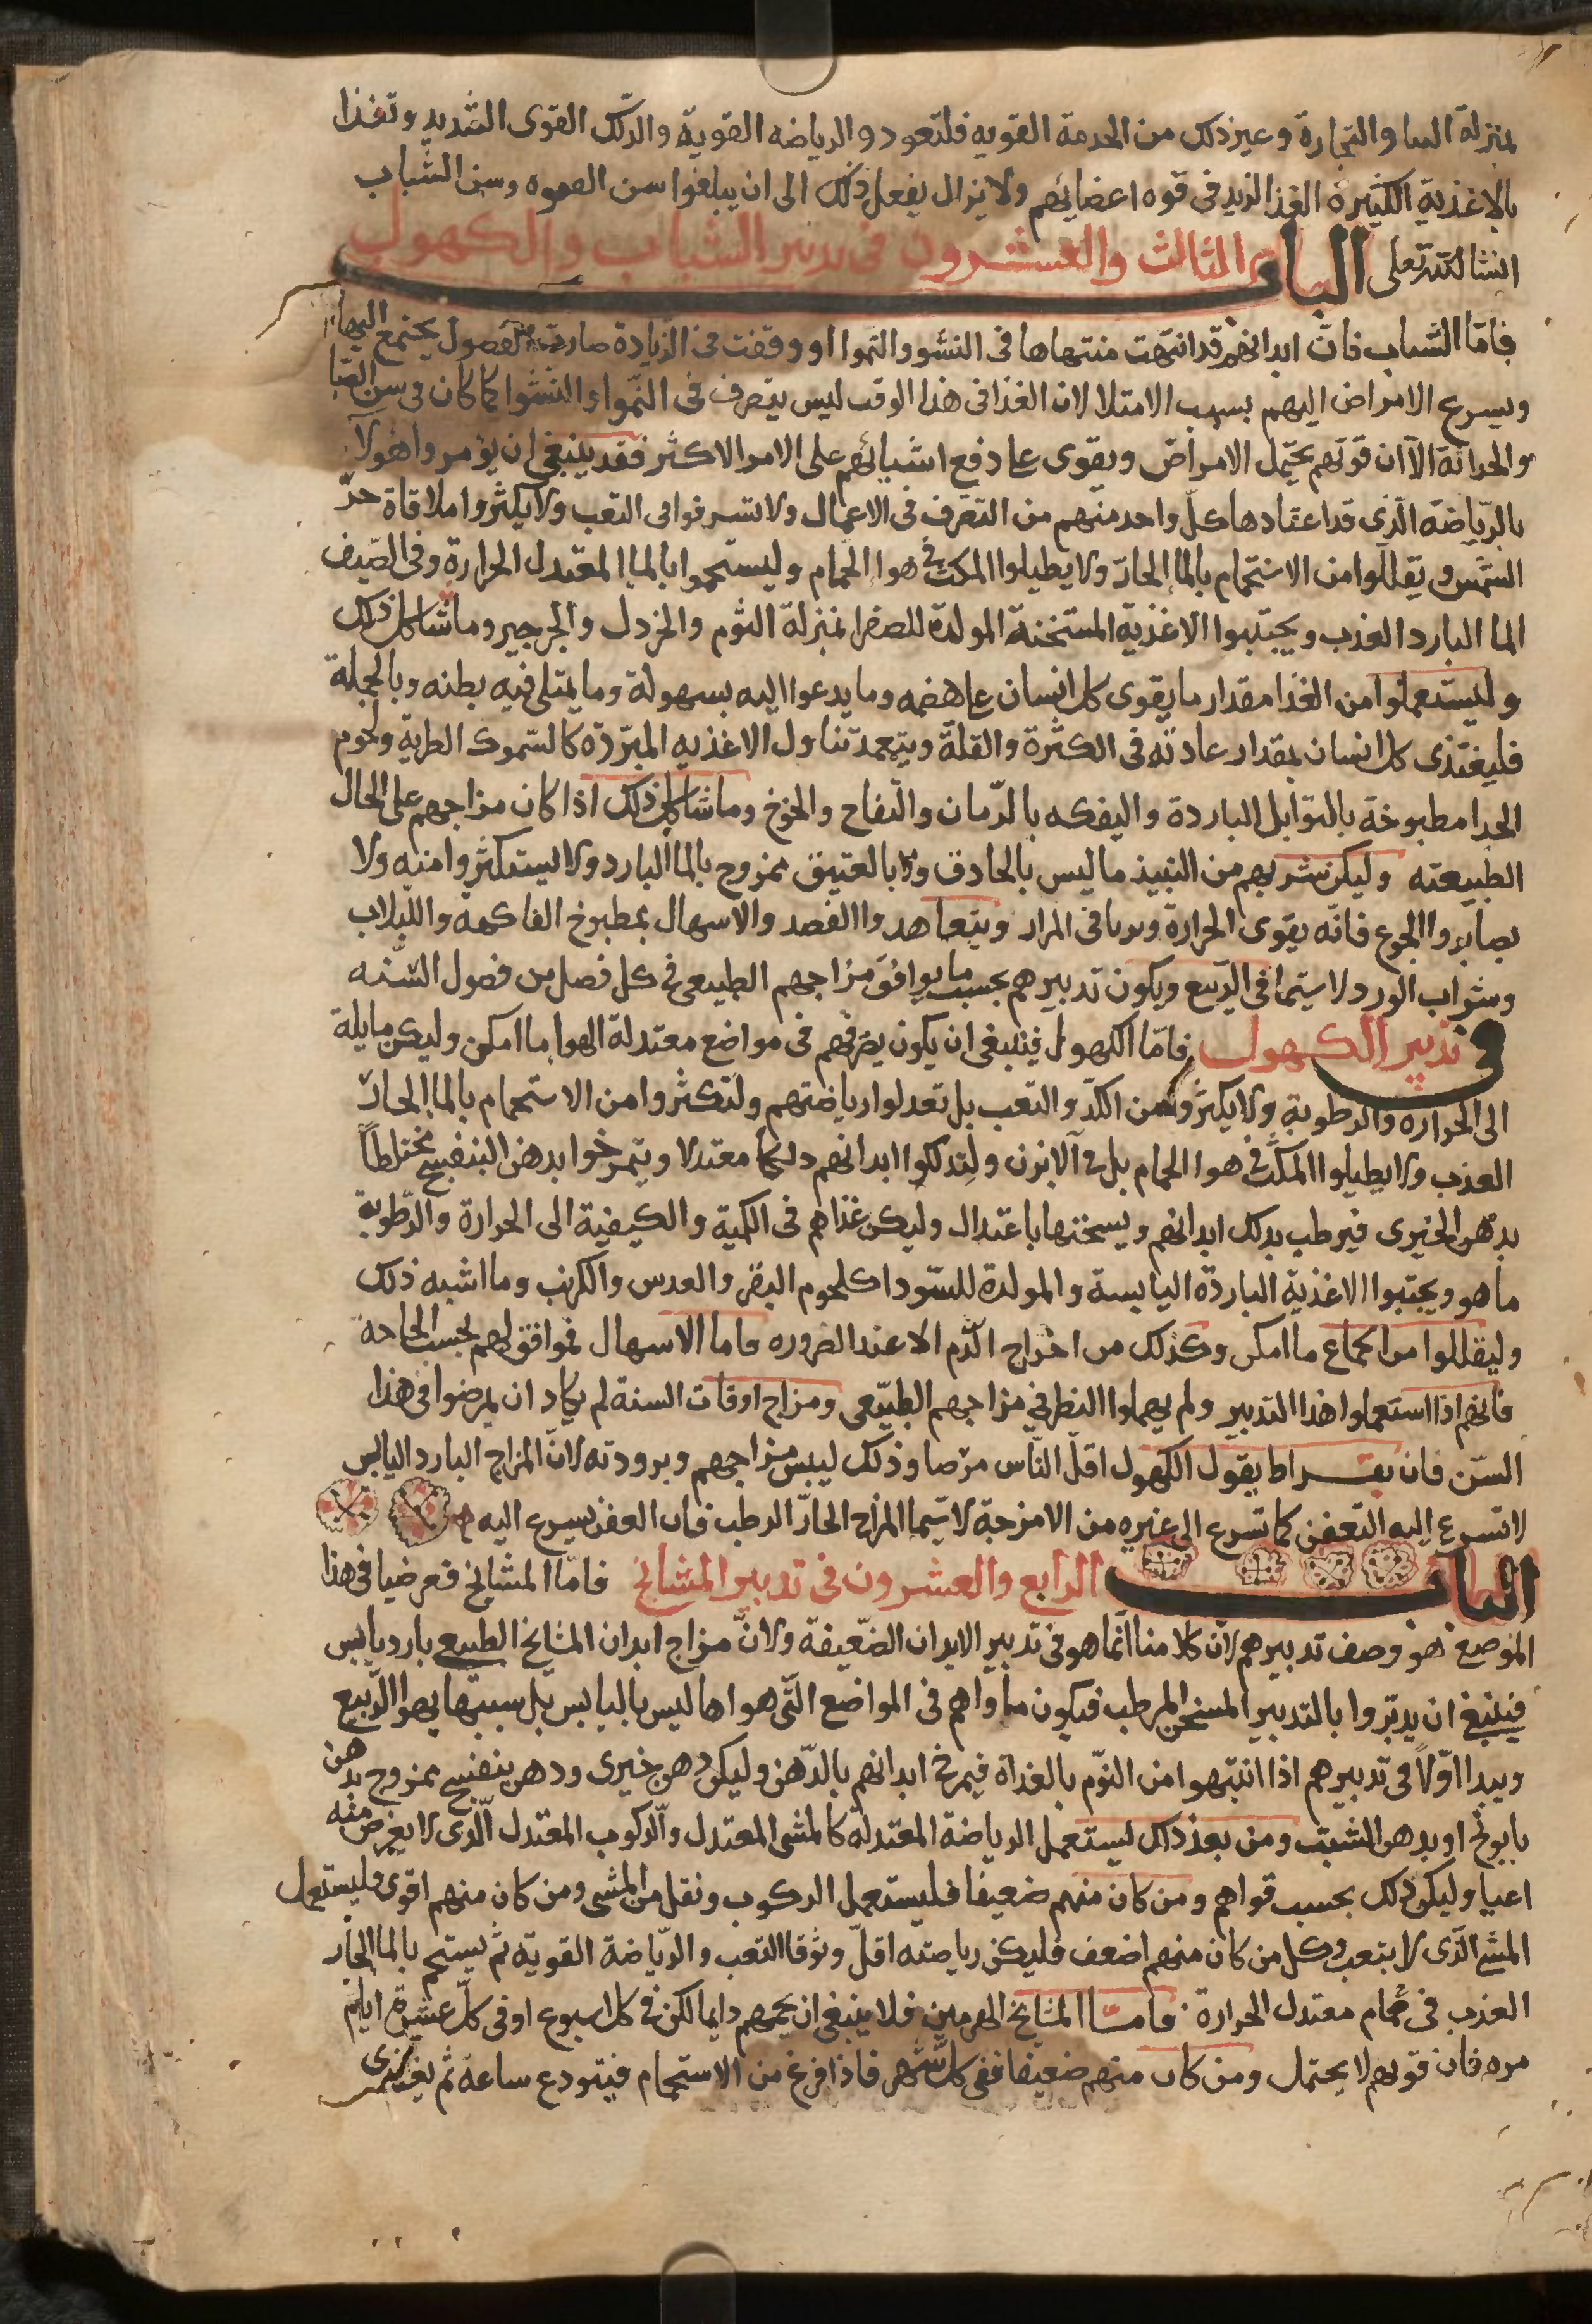 بمنزلة البنا والتجارة وغير ذلك من الخدمة القويه فلتعودوا الرياضه القوية والدلك القوى الشديد وتغذا
بالاغذية الكثيرة الغذا لتزيد فى قوه اعضايهم ولا يزال يفعل ذلك الى ان يبلغوا سن الفتوه وسن الشباب
انشا لله تعلى الباب الثالث والعشرون فى تدبير الشباب والكهول
فامّا الشباب فان ابدانهم قد انتهت منتهاها فى النشو والنموا او وقفت فى الزيادة صارت الفضول يجتمع اليها
ويسرع الامراض اليهم بسبب الامتلا لان الغذا فى هذا الوقت ليس يتصرف فى النموا والنشوا كما كان فى سن الصبا
والحداثة الا ان قوتهم يحتمل الامراض ويقوى على دفع اشيائهم على الامر الاكثر فقد ينبغى ان يؤمروا هولا
بالرياضة الذى قد اعتادها كل واحد منهم من التصرف فى الاعمال ولا تسرفوا فى التعب ولا يكثروا ملاقاة حر
الشمس ويقللوا من الاستحمام بالما الحار ولا يطيلوا المكث فى هوا الحمام وليستحموا بالما المعتدل الحرارة وفى الصيف
الما البارد العذب ويجتنبوا الاغذية المسخنة المولدة للصفرا بمنزلة الثوم والخردل والجرجير وما شاكل ذلك
وليستعملوا من الغذا مقدار ما يقوى كل انسان على هضمه وما يدعوا اليه بسهولة وما يمتلى فيه بطنه وبالجملة
فليغتذى كل انسان بمقدار عادته فى الكثرة والقلة ويتعمد تناول الاغذيه المبردة كالسموك الطرية ولحوم
الجدا مطبوخة بالتوابل الباردة واليفكه بالرمان والتفاح والخوخ وما شاكل ذلك اذا كان مزاجهم على الحال
الطبيعته وليكن شربهم من النبيذ ما ليس بالحاذق ولا بالعتيق ممزوج بالما البارد ولا ليستكثروا منه ولا
يصابروا الجوع فانه يقوى الحرارة فى المرار ويتعاهدوا الفصد والاسهال بمطبوخ الفاكهة واللبلاب
وشراب الورد لا سيما فى الربيع ويكون تدبيرهم بحسب ما يوافق مزاجهم الطبيعى فى كل فصل من فصول السنه
فى تدبير الكهول فامّا الكهول فينبغى ان يكون تصرفهم فى مواضع معتدلة الهوا ما امكن وليكن مايلة
الى الحراره والرطوبة ولا يكثروا من الكدّ والتعب بل تعدلوا رياضتهم ولتكثروا من الاستحمام بالما الحارّ
العذب ولا يطيلوا المكث فى هوا الحمام بل فى الابزن ولتدلكوا ابدانهم دلكا معتدلا ويتمرخوا بدهن البنفسج مختلطاً
بدهن الخيرى فيرطب بذلك ابدانهم ويسخنها باعتدال وليكن غذاهم فى الكمية والكيفية الى الحرارة والرطوبة
ما هو ويجتنبوا الاغذية الباردة اليابسة والمولدة للسودا كلحوم البقر والعدس والكرنب وما اشبه ذلك
وليقللوا من الجماع ما امكن وكذلك من اخراج الدم الا عند الضروره فاما الاسهال فموافق لهم بحسب الحاجة
فانهم اذا استعملوا هذا التدبير ولم يهملوا النظر فى مزاجهم الطبيعى ومزاج اوقات السنة لم يكاد ان يمرضوا فى هذا
السن فان بقراط يقول الكهول اقل الناس مرضا وذلك ليبس مزاجهم وبرودته لان المزاج البارد اليابس
لا تسرع اليه التعفن كما تسرع الى غيره من الامزجة لا سيما المزاج الحار الرطب فان العفن يسرع اليه
الباب الرابع والعشرون فى تدبير المشايخ فامّا المشايخ فعرضنا فى هذا
الموضع هو وصف تدبيرهم لان كلامنا انما هو فى تدبير الابدان الضعيفة ولان مزاج ابدان المشايخ الطبيعى بارد يابس
فينبغى ان يدبروا بالتدبير المسخن المرطب فيكون ماواهم فى المواضع التى هواها ليس باليابس بل سببها بهوا الربيع
ويبدا اوّلاً فى تدبيرهم اذا انتبهوا من النوم بالغداة فيمرخ ابدانهم بالدهن وليكن دهن خيرى ودهن بنفسج ممزوج بدهن
بابونج او بدهن الشبت ومن بعد ذلك ليستعمل الرياضة المعتدلة كالمشى المعتدل والركوب المعتدل الذى لا يعرض منه
اعيا وليكن ذلك بحسب قواهم ومن كان منهم ضعيفا فليستعمل الركوب ونقل من المشى ومن كان منهم اقوى فليستعمل
المشى الذى لا يتعب وكل من كان منهم اضعف فليكن رياضته اقلّ وتوقا التعب والرياضة القوية ثم يستحم بالما الحار
العذب فى حمام معتدل الحرارة فامّا المشايخ الهرمين فلا ينبغى ان يحمهم دايما لكن فى كل اسبوع او فى كل عشرة ايام
مره فان قوتهم لا يحتمل ومن كان منهم ضعيفا ففى كل شهر فاذا فرغ من الاستحمام فيتودع ساعة ثم يغتذى